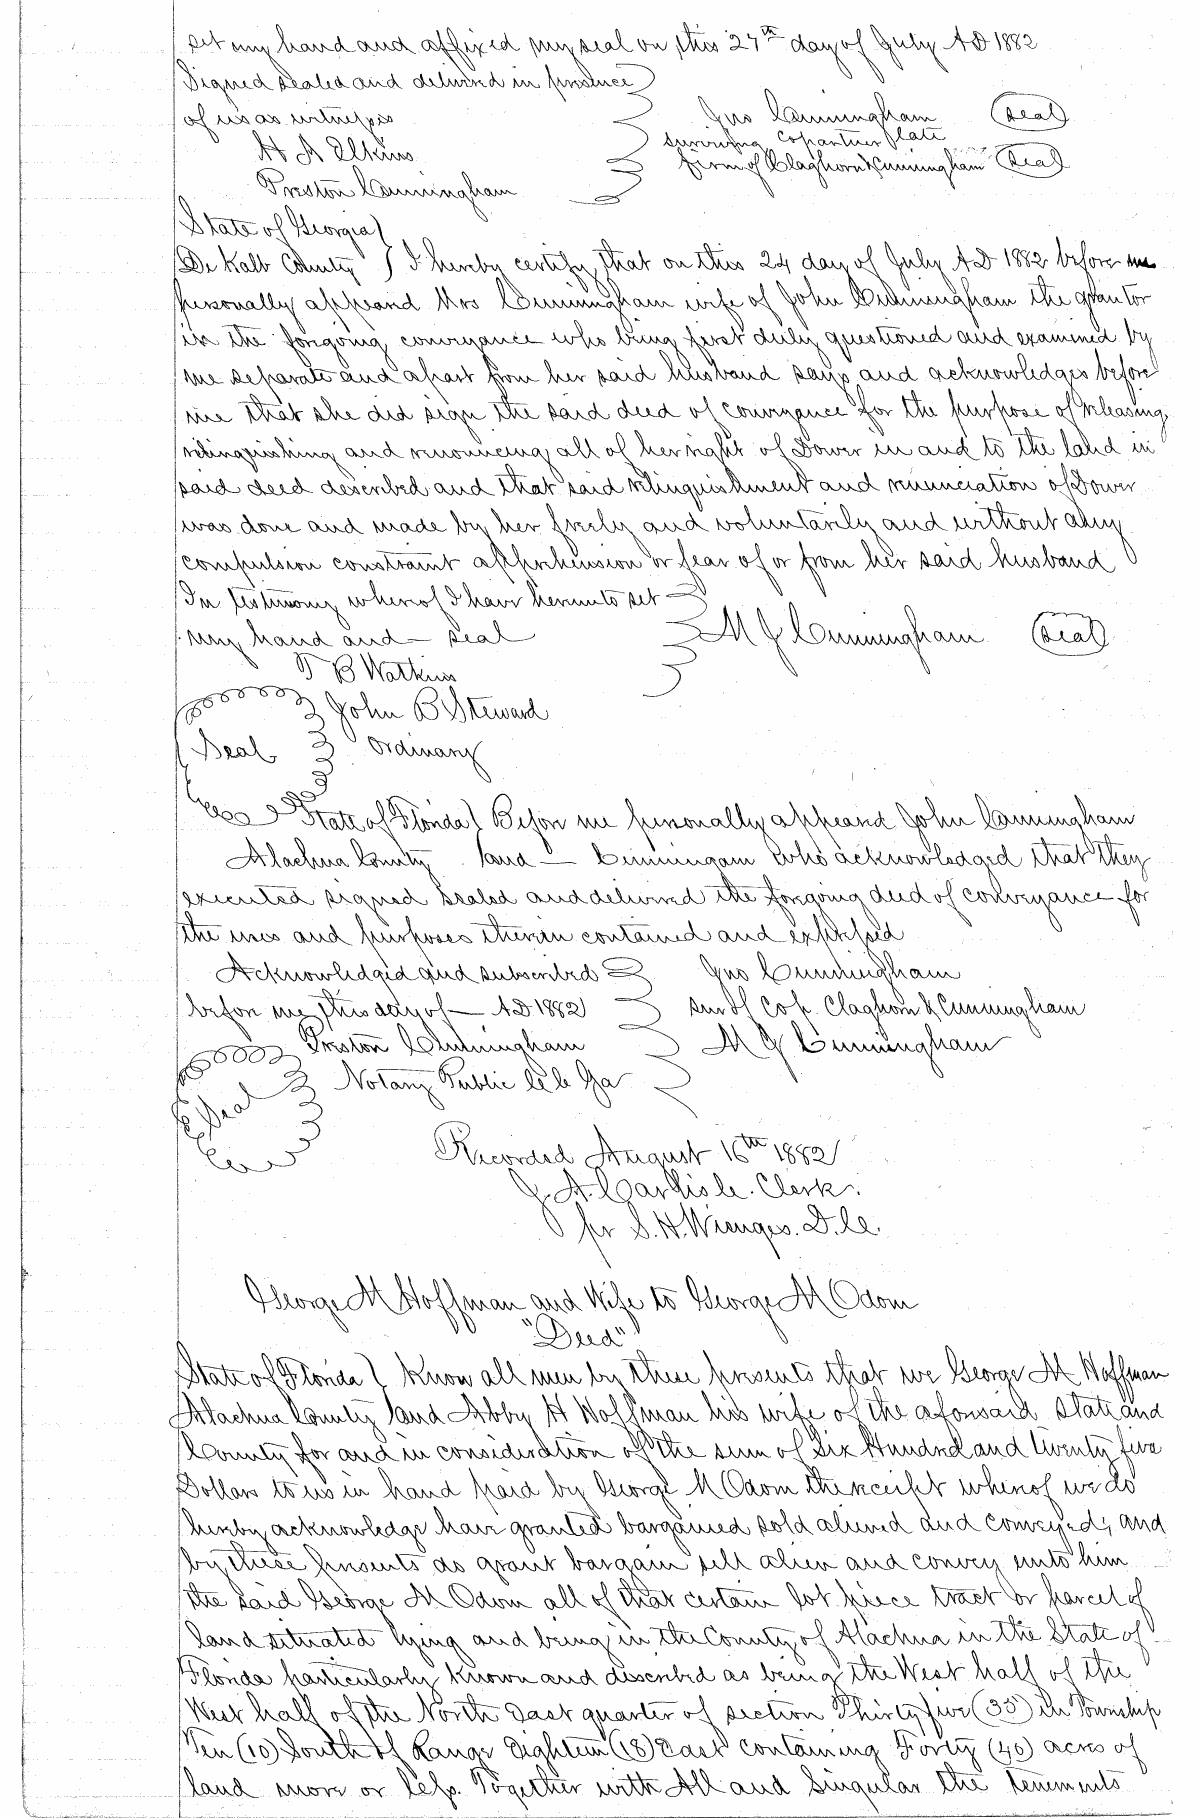 set my hand and affixed my seal on this 27th day of July A D 1882
Signed sealed and delivered in presence
of us as witness
Jno Cunningham (Seal)
surviving copartner of late
H A Elkins
firm of Claghorn & Cunningham (Seal)
Preston Cunningham
State of Georgia
De Kalb County I hereby certify that on this 24 day of July A D 1882 before me
personally appeard Mrs Cunningham wife of John Cunningham the grantor
in the forgoing conveyance who being first duly questioned and examined by
me separate and apart from her said husband says and acknowledges before
me that she did sign the said deed of conveyance for the purpose of releasing,
relinquishing and renouncing all of her right of Dower in and to the land in
said deed described and that said relinquishment and renunciation of Dower
was done and made by her freely and voluntarily and without any
compulsion constraint apprehension or fear of or from her said husband
In testimony whereof I have hereunto set
my hand and seal M J Cunningham (Seal)
T B Watkins
John B Steward
Seal Ordinary
State of Florida Before me personally appeard John Cunningham
Alachua County and — Cunningam who acknowledged that they
executed signed sealed and delivered the forgoing deed of conveyance for
the uses and purposes therein contained and expressed
Acknowledged and subscribed Jno Cunningham
before me this day of — A D 1882 Cop. Claghorn & Cunningham
Preston Cunningham M J Cunningham
Notary Public Ga
Seal
Recorded August 16th 1882
J. A. Carlisle. Clerk.
per S. H. Wienges. D. C.
George M Hoffman and Wife to George M Odom
"Deed"
State of Florida Know all men by these presents that we George M Hoffman
Alachua County and Abby H Hoffman his wife of the aforesaid State and
County for and in consideration of the sum of Six Hundred and twenty five
Dollars to us in hand paid by George M Odom the receipt whereof we do
hereby acknowledge have granted bargained sold aliened and conveyed, and
by these presents do grant bargain sell alien and convey unto him
the said George M Odom all of that certain lot piece tract or parcel of
land situated lying and being in the County of Alachua in the State of
Florida particularly known and described as being the West half of the
West half of the North East quarter of section Thirty five (35) in Township
Ten (10) South of Range Eighteen (18) East containing Forty (40) acres of
land more or less. Together with All and Singular the tenements